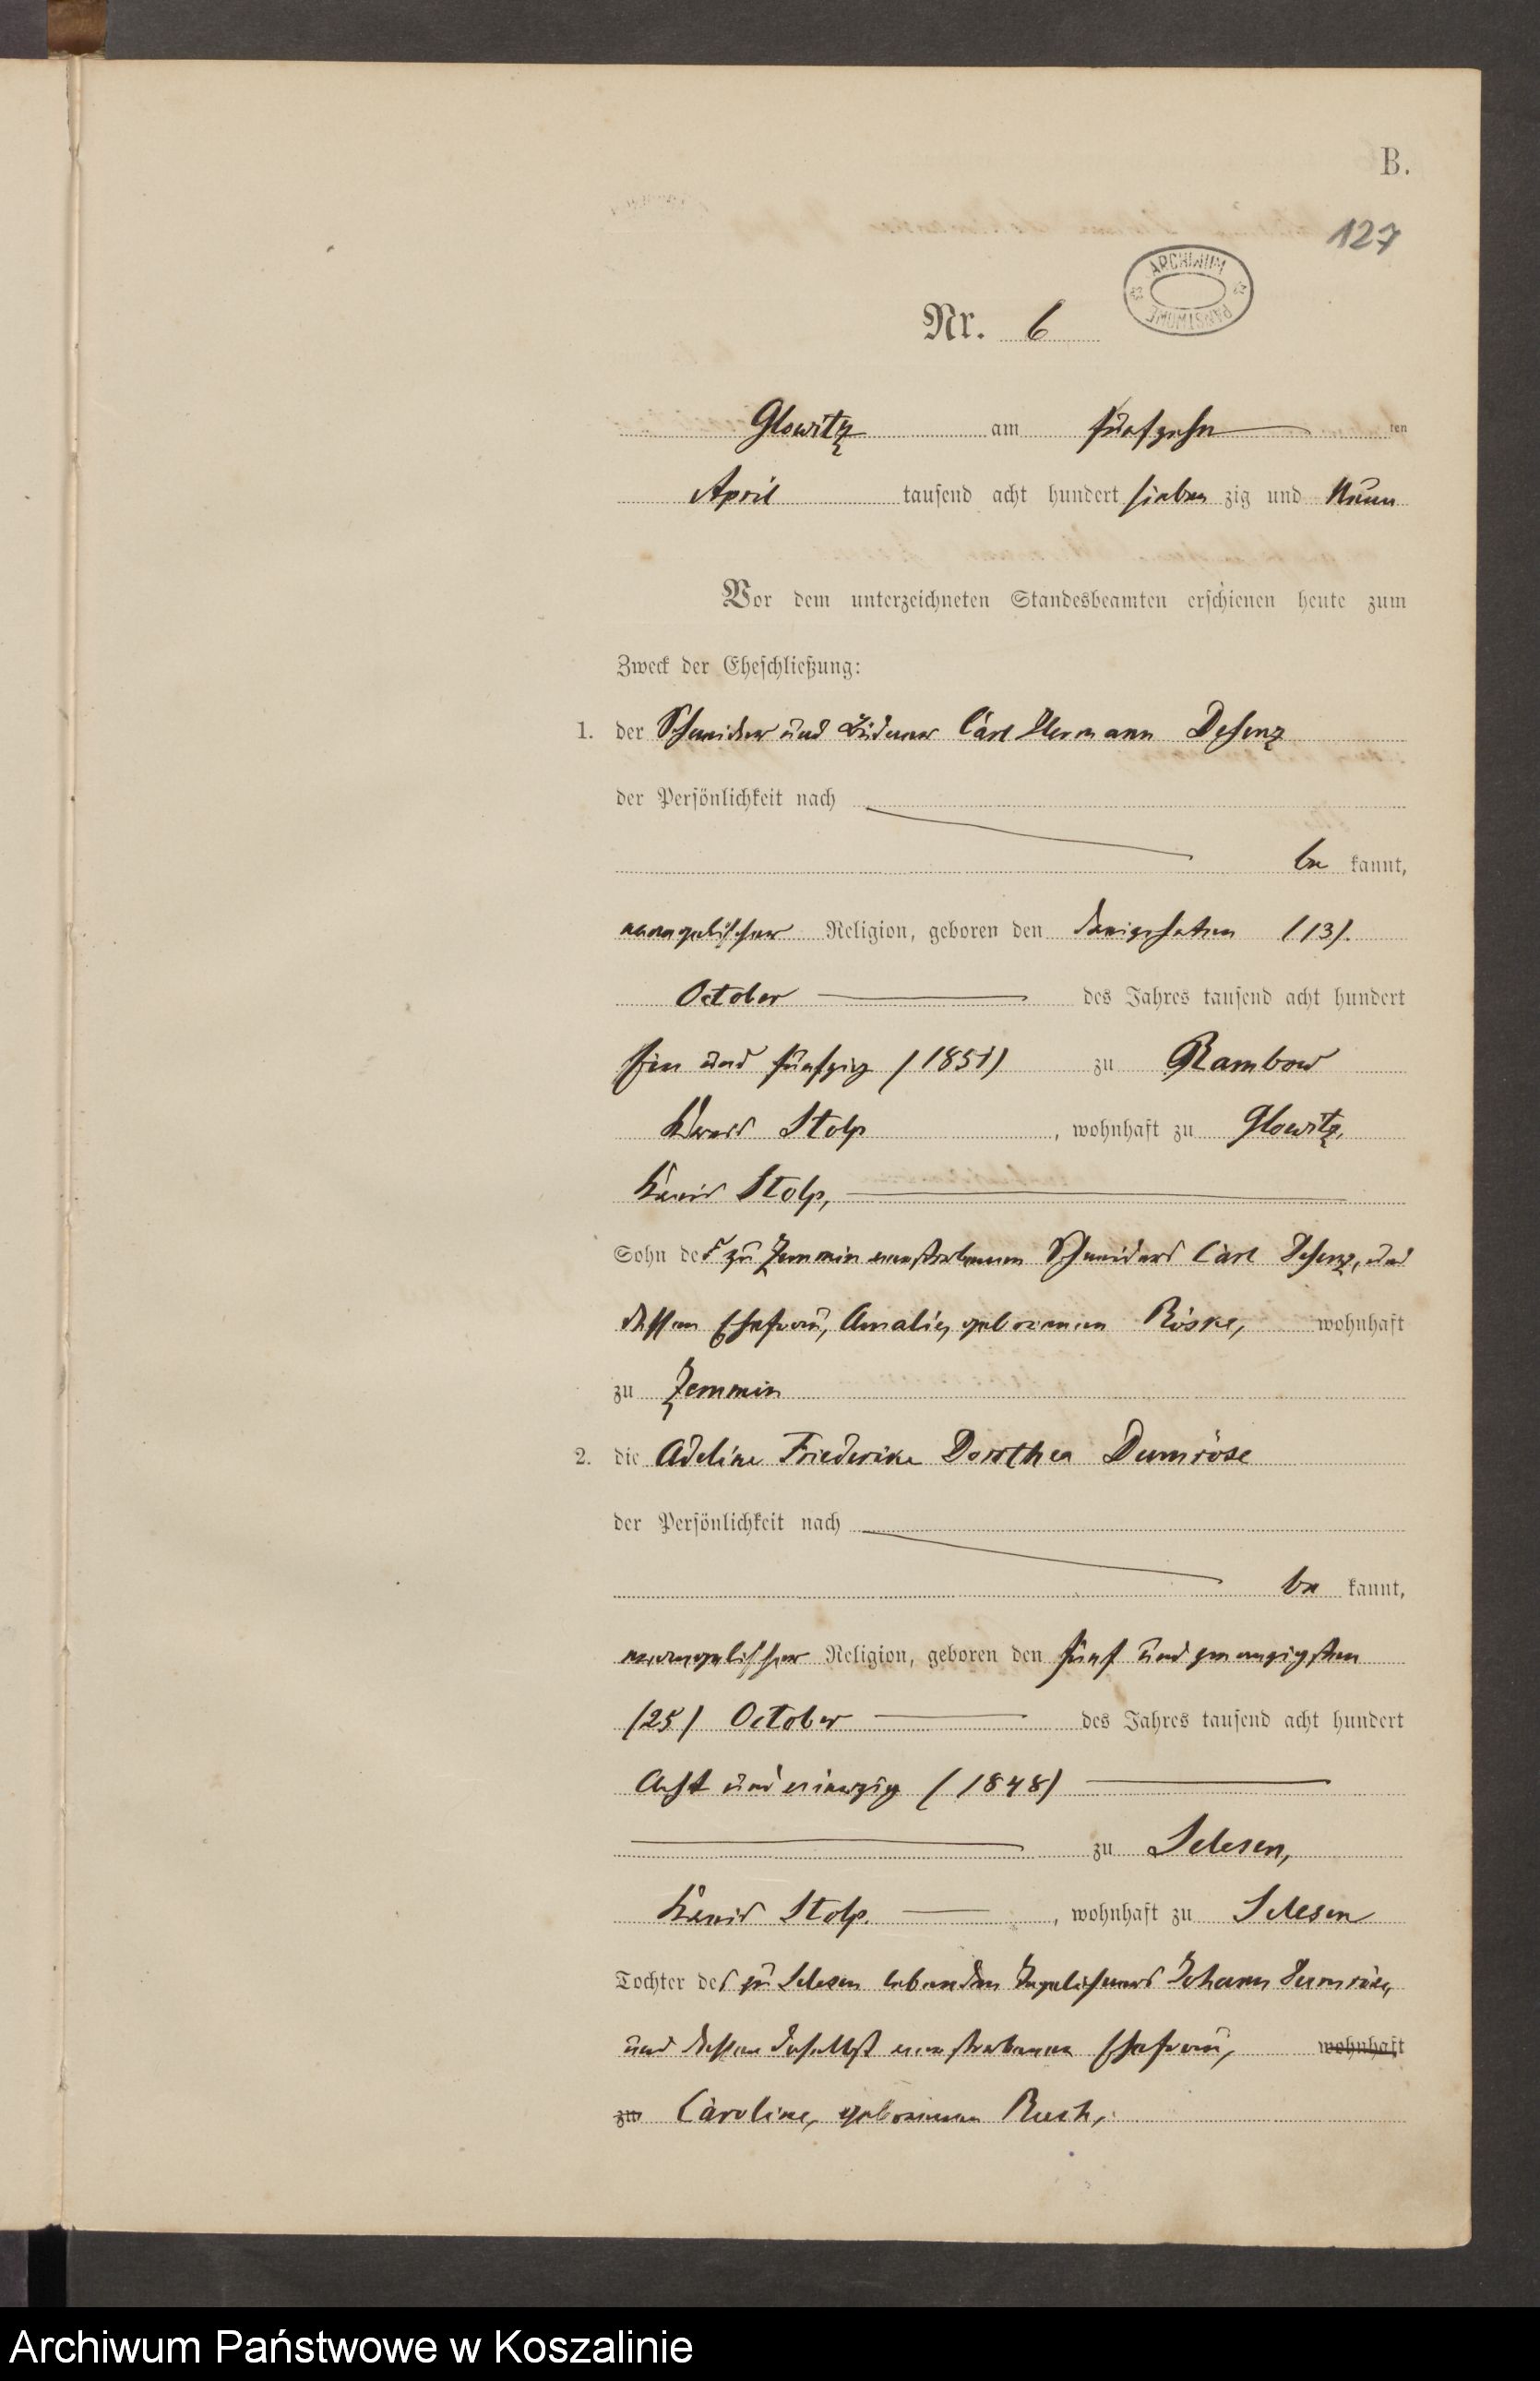 B.
127
ARCHIWUM
PAŃSTWOWE
Nr. 6
Glowitz am fünfzehn ten
April tausend acht hundert sieben zig und Neun
Vor dem unterzeichneten Standesbeamten erschienen heute zum
Zweck der Eheschließung:
1. der Schneider und Büdner Carl Hermann Desenz
der Persönlichkeit nach
be kannt,
evangelischer Religion, geboren den dreizehnten (13).
October des Jahres tausend acht hundert
Ein und fünfzig (1851) zu Rambow
Kreis Stolp , wohnhaft zu Glowitz,
Kreis Stolp,
Sohn des zu Zemmin verstorbenen Schneiders Carl Desenz, und
dessen Ehefrau, Amalie, geborenen Röske, wohnhaft
zu Zemmin
2. die Adeline Friederike Dorothea Dumröse
der Persönlichkeit nach
be kannt,
evangelischer Religion, geboren den fünf und zwanzigsten
(25) October des Jahres tausend acht hundert
Acht und vierzig (1848)
zu Selesen,
Kreis Stolp. , wohnhaft zu Selesen
Tochter des zu Selesen lebenden Johann Dumröse,
und dessen daselbst verstorbenen Ehefrau, wohnhaft
zu Caroline, geborenen Rusch,
Archiwum Państwowe w Koszalinie